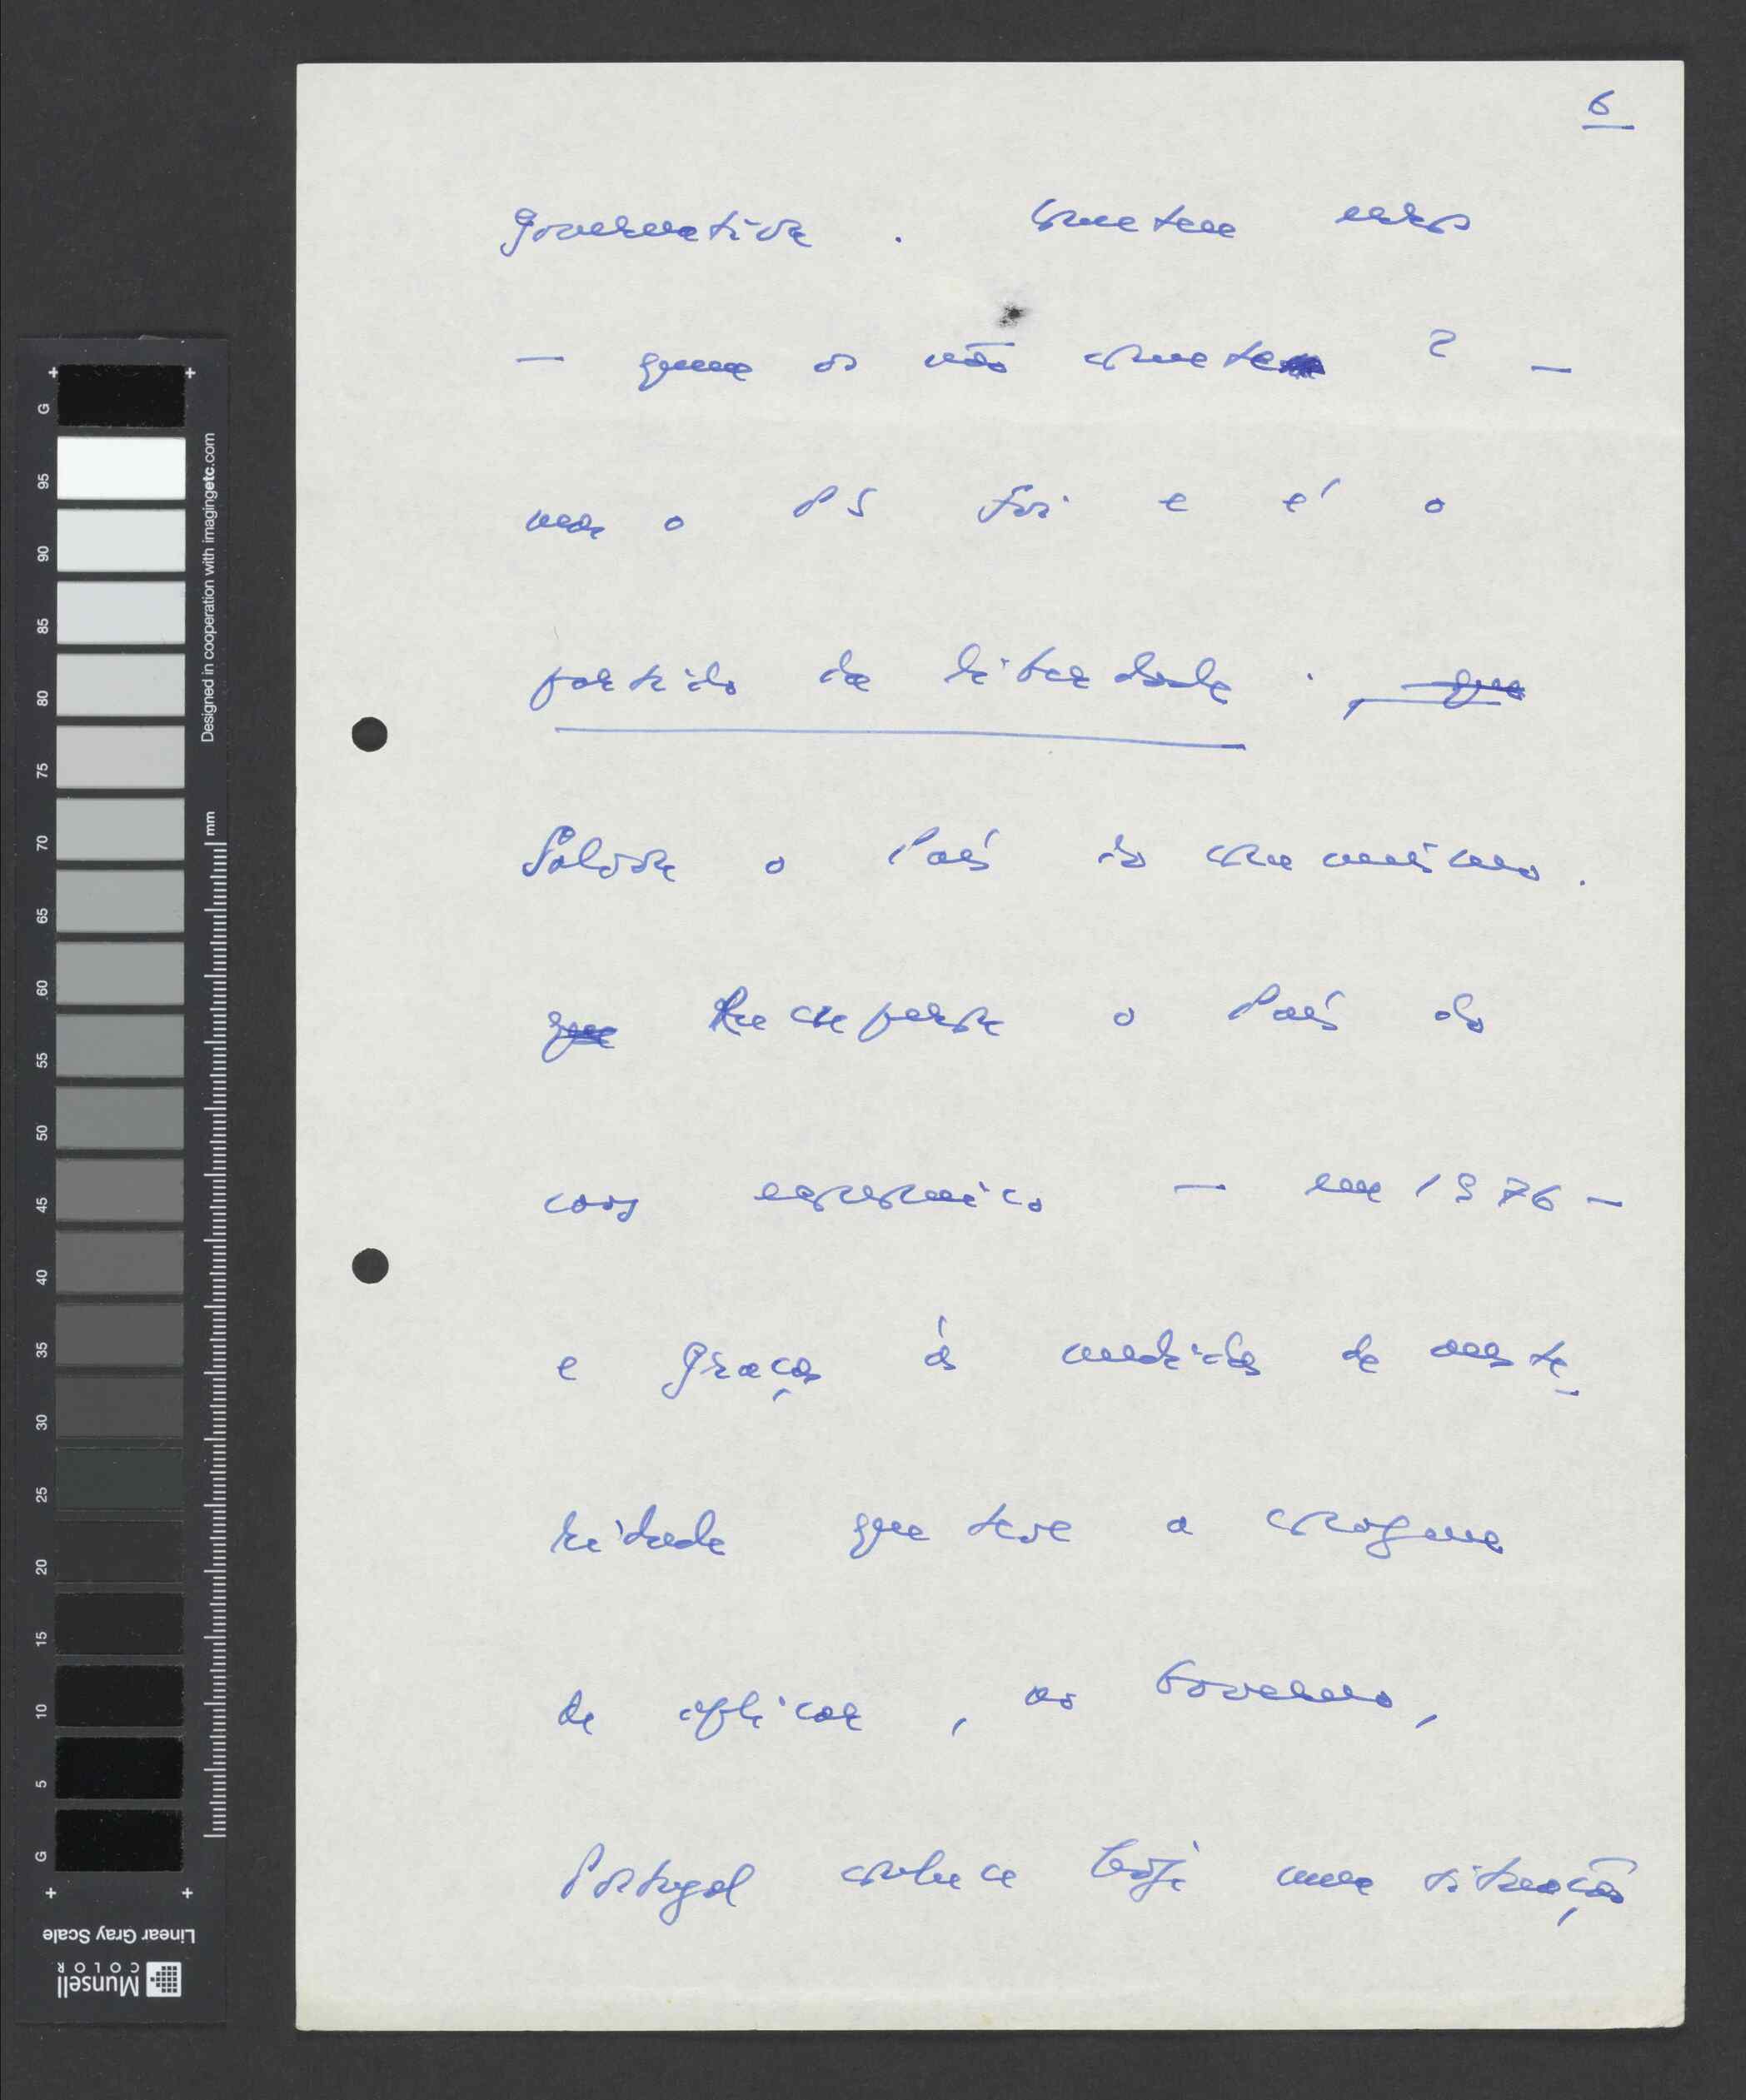 6
governativa. Cometeu erros
— quem os não comete? —
mas o PS foi e é o
partido da liberdade. , que
Salvou o País do comunismo.
que Recuperou o País do
caos económico — em 1976 —
e graças às medidas de auste_
ridade que teve a coragem
de aplicar, no Governo,
Portugal conhece hoje uma situação
G 95 90 85 80 75 70 65 60 55 50 45 40 35 30 25 20 15 10 5 G
Designed in cooperation with imagingetc.com
mm
Linear Gray Scale
Munsell
COLOR